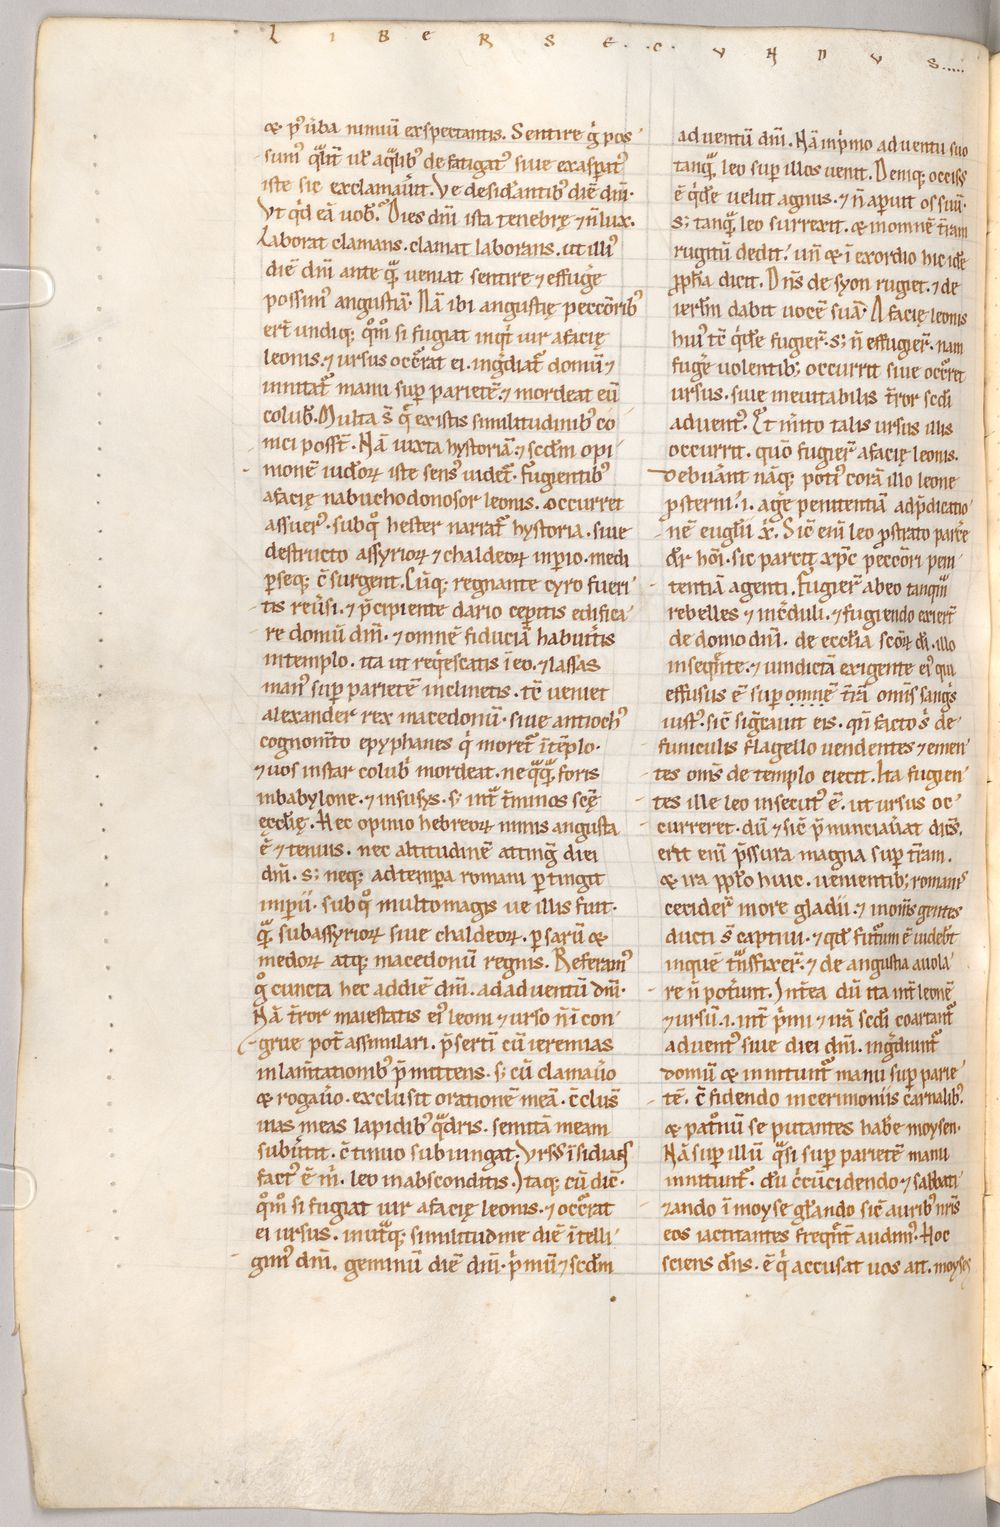 LIBER SECVNDVS.....
& p͛ uba nimiū exspectantis. Sentire g̊ pos
sum᷒ qͣlit͛ ut͛ aqͣlib᷒ defatigat᷒ siue exasꝑat᷒
iste sic exclamauit͛. Ve desid͛antib᷒ diē dn̄i.
Vt qͥd eā uob͛. Dies dn̄i ista tenebrę ⁊ n̄ lux.
Laborat clamans. clamat laborans. ut illi᷒
diē dn̄i ante qͣ̄ ueniat sentire ⁊ effug͛e
possim᷒ angustiā. Nā ibi angustię peccōrib᷒
er̄t undiq; qͦm̄ si fugiat inqͥt uir a facię
leonis. ⁊ ursus occ͛rat ei. ingͤdiat᷑ domū ⁊
innitat᷑ manu suꝑ parietē. ⁊ mordeat eū
colub͛. Multa s̄ qͥ existis similitudinib᷒ co
nici poss͛t. Nā iuxta hystoriā. ⁊ scd̄m opi
monē iudeoꝝ iste sens᷒ uidet᷑. fugientib᷒
a facię nabuchodonosor leonis. occurret
assuer᷒. sub qͦ hester narrat᷑ hystoria. siue
destructo assyrioꝝ ⁊ chaldeoꝝ inꝑio. medi
ꝑseq; c̄surgent. Cūq; regnante cyro fueri
tis reu͛si. ⁊ p̄cipiente dario cep͛itis edifica
re domū dn̄i. ⁊ omnē fiduciā habuit͛is
in templo. ita ut reqͥescatis ī eo. ⁊ lassas
man᷒ suꝑ parietē inclinetis. tc̄ ueniet
alexander rex macedonū. siue antioch᷒
cognom̄to epyphanes qͥ moret᷑ ī tēplo.
⁊ uos instar colubͥ mordeat. ne qͣqͣ̄ foris
in babylone. ⁊ in susys. s; intͣ t͛minos scę̄
ęccl̄ię. Hec opinio hebreoꝝ nimis angusta
ē ⁊ tenuis. nec altitudinē atting͛ diei
dn̄i. s; neq; ad tempa romani ꝑtingit
imꝑii. sub qͦ multo magis ue illis fuit.
qͣ̄ sub assyrioꝝ siue chaldeoꝝ. ꝑsarū &
medoꝝ atq; macedonū regnis. Referam᷒
g̊ cuncta hec ad diē dn̄i. ad aduentū dn̄i.
Nā t͛ror maiestatis ei᷒ leoni ⁊ urso n̄ ī con
grue pot̄ assimilari. p̄sertī cū ieremias
in lam̄tationib᷒ p̄mittens. s; cū clamau͛o
& rogau͛o. exclusit orationē meā. c̄clus͛
uias meas lapidib᷒ qͣdris. semitā meam
subu͛tit. c̄tinuo subiungat. Vrss̄ ī sidians
fact᷒ ē mͥ. leo in absconditis. Itaq; cū dic̄.
qͦm̄ si fugiat uir a facię leonis. ⁊ occ͛rat
ei ursus. inutͣq; similitudine diē ītelli
gim᷒ dn̄i. geminū diē dn̄i. pͥmū ⁊ scd̄m
aduentū dn̄i. Nā in pͥmo aduentu suo
tanqͣ̄ leo suꝑ illos uenit. Deniq; occiss᷒
ē qͥde uelut agnus. ⁊ n̄ aꝑuit os suū.
S; tanqͣ̄ leo surrexit. & in omnē t͛ram
rugitū dedit. un̄ & ī exordio hic idē
ꝓph̄a dicit. Dn̄s de syon rugiet. ⁊ de
ierl̄m dabit uocē suā. A facię leonis
hui᷒ tc̄ qͥde fugier͛. S; n̄ effugier͛. nam
fug͛e uolentib; occurrit siue occ͛ret
ursus. siue ineuitabilis t͛ror scd̄i
aduent᷒. Et m͛ito talis ursus illis
occurrit. quō fugier͛ a facię leonis.
Debuer̄t nāq; poti᷒ corā illo leone
ꝓsterni. i. ag͛e penitentiā ad p̄dicatio
nē eugl̄ii x̄. Sic̄ eni leo ꝓstrato parc͛e
dr̄ hōi. sic parcit xp̄c peccōri peni
tentiā agenti. Fugier͛ ab eo tanqͣ̄
rebelles ⁊ inc͛duli. ⁊ fugiendo exier̄t
de domo dn̄i. de eccl̄ia scōꝝ di. illo
inseqͣnte. ⁊ uindictā exigente ei᷒ qui
effusus ē suꝑ omnē t͛rā omīs sangͥs
iust᷒. sic̄ sigͣuit eis. qn̄ facto s̊ de
funiculis flagello uendentes ⁊ emen
tes om̄s de templo eiecit. Ita fugien
tes ille leo insecut᷒ ē. ut ursus oc
curreret. dū ⁊ sic̄ p̄nunciau͛at dic̄s.
erit eni p̄ssura magna suꝑ t͛ram.
& ira ꝓpl̄o huic. uenientib; romanis
cecider͛ more gladii. ⁊ in om̄s gentes
ducti s̄ captiui. ⁊ qd̄ futurum ē uideb̄t
in quē tͣnsfixer͛. ⁊ de angustia auola
re n̄ pot͛unt. Int͛ea dū ita int͛ leonē
⁊ ursū. i. int͛ pͥmi ⁊ irā scd̄i coartant᷑
aduent᷒ siue diei dn̄i. ingͤdiunt᷑
domū & innitunt᷑ manu suꝑ parie
tē. c̄fidendo in cerimoniis carnalib᷒.
& patͦnū se putantes hab͛e moysen.
Nā suꝑ illū qͣsi suꝑ parietē manu
innitunt᷑. cū cͥcūcidendo ⁊ sabbati
zando ī moyse gl̄ando sic̄ aurib᷒ nr̄is
eos iactitantes freqn̄t audim᷒. Hoc
sciens dn̄s. ē qͥ accusat uos ait. moyses